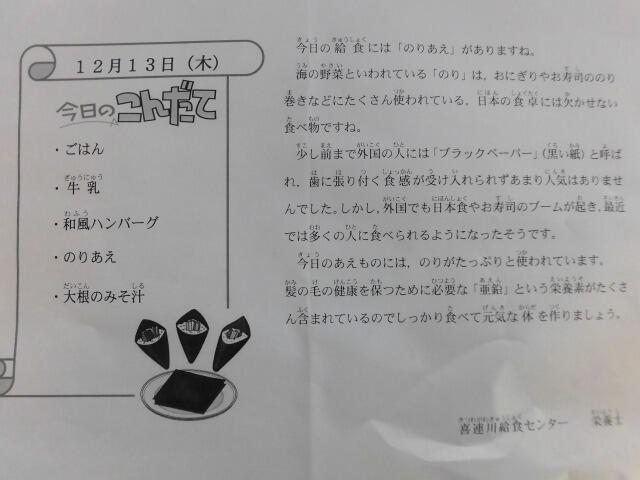 12月13日（木）
今日のこんだて
・ごはん
・牛乳
・和風ハンバーグ
・のりあえ
・大根のみそ汁
今日の給食には「のりあえ」がありますね。
海の野菜といわれている「のり」は，おにぎりやお寿司ののり
巻きなどにたくさん使われている，日本の食卓には欠かせない
食べ物ですね。
少し前まで外国の人には「ブラックペーパー」（黒い紙）と呼ば
れ，歯に張り付く食感が受け入れられずあまり人気はありませ
んでした。しかし，外国でも日本食やお寿司のブームが起き，最近
では多くの人に食べられるようになったそうです。
今日のあえものには，のりがたっぷりと使われています。
髪の毛の健康を保つために必要な「亜鉛」という栄養素がたくさ
ん含まれているのでしっかり食べて元気な体を作りましょう。
喜連川給食センター　栄養士